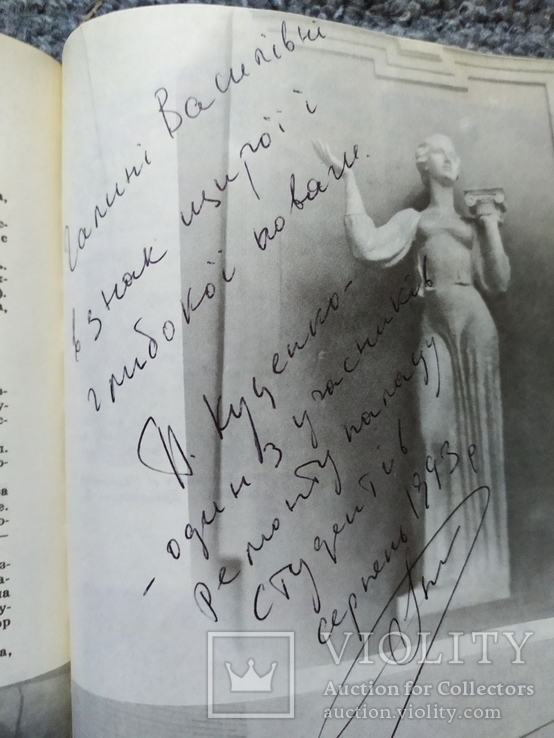 Галині Василівні
взнак щирої і
глибокої поваги.
В. Куценко-
- один з учасників
ремонту палацу
студентів
серпень 1993 р
VIOLITY
Auction for Collectors
auction.violity.com